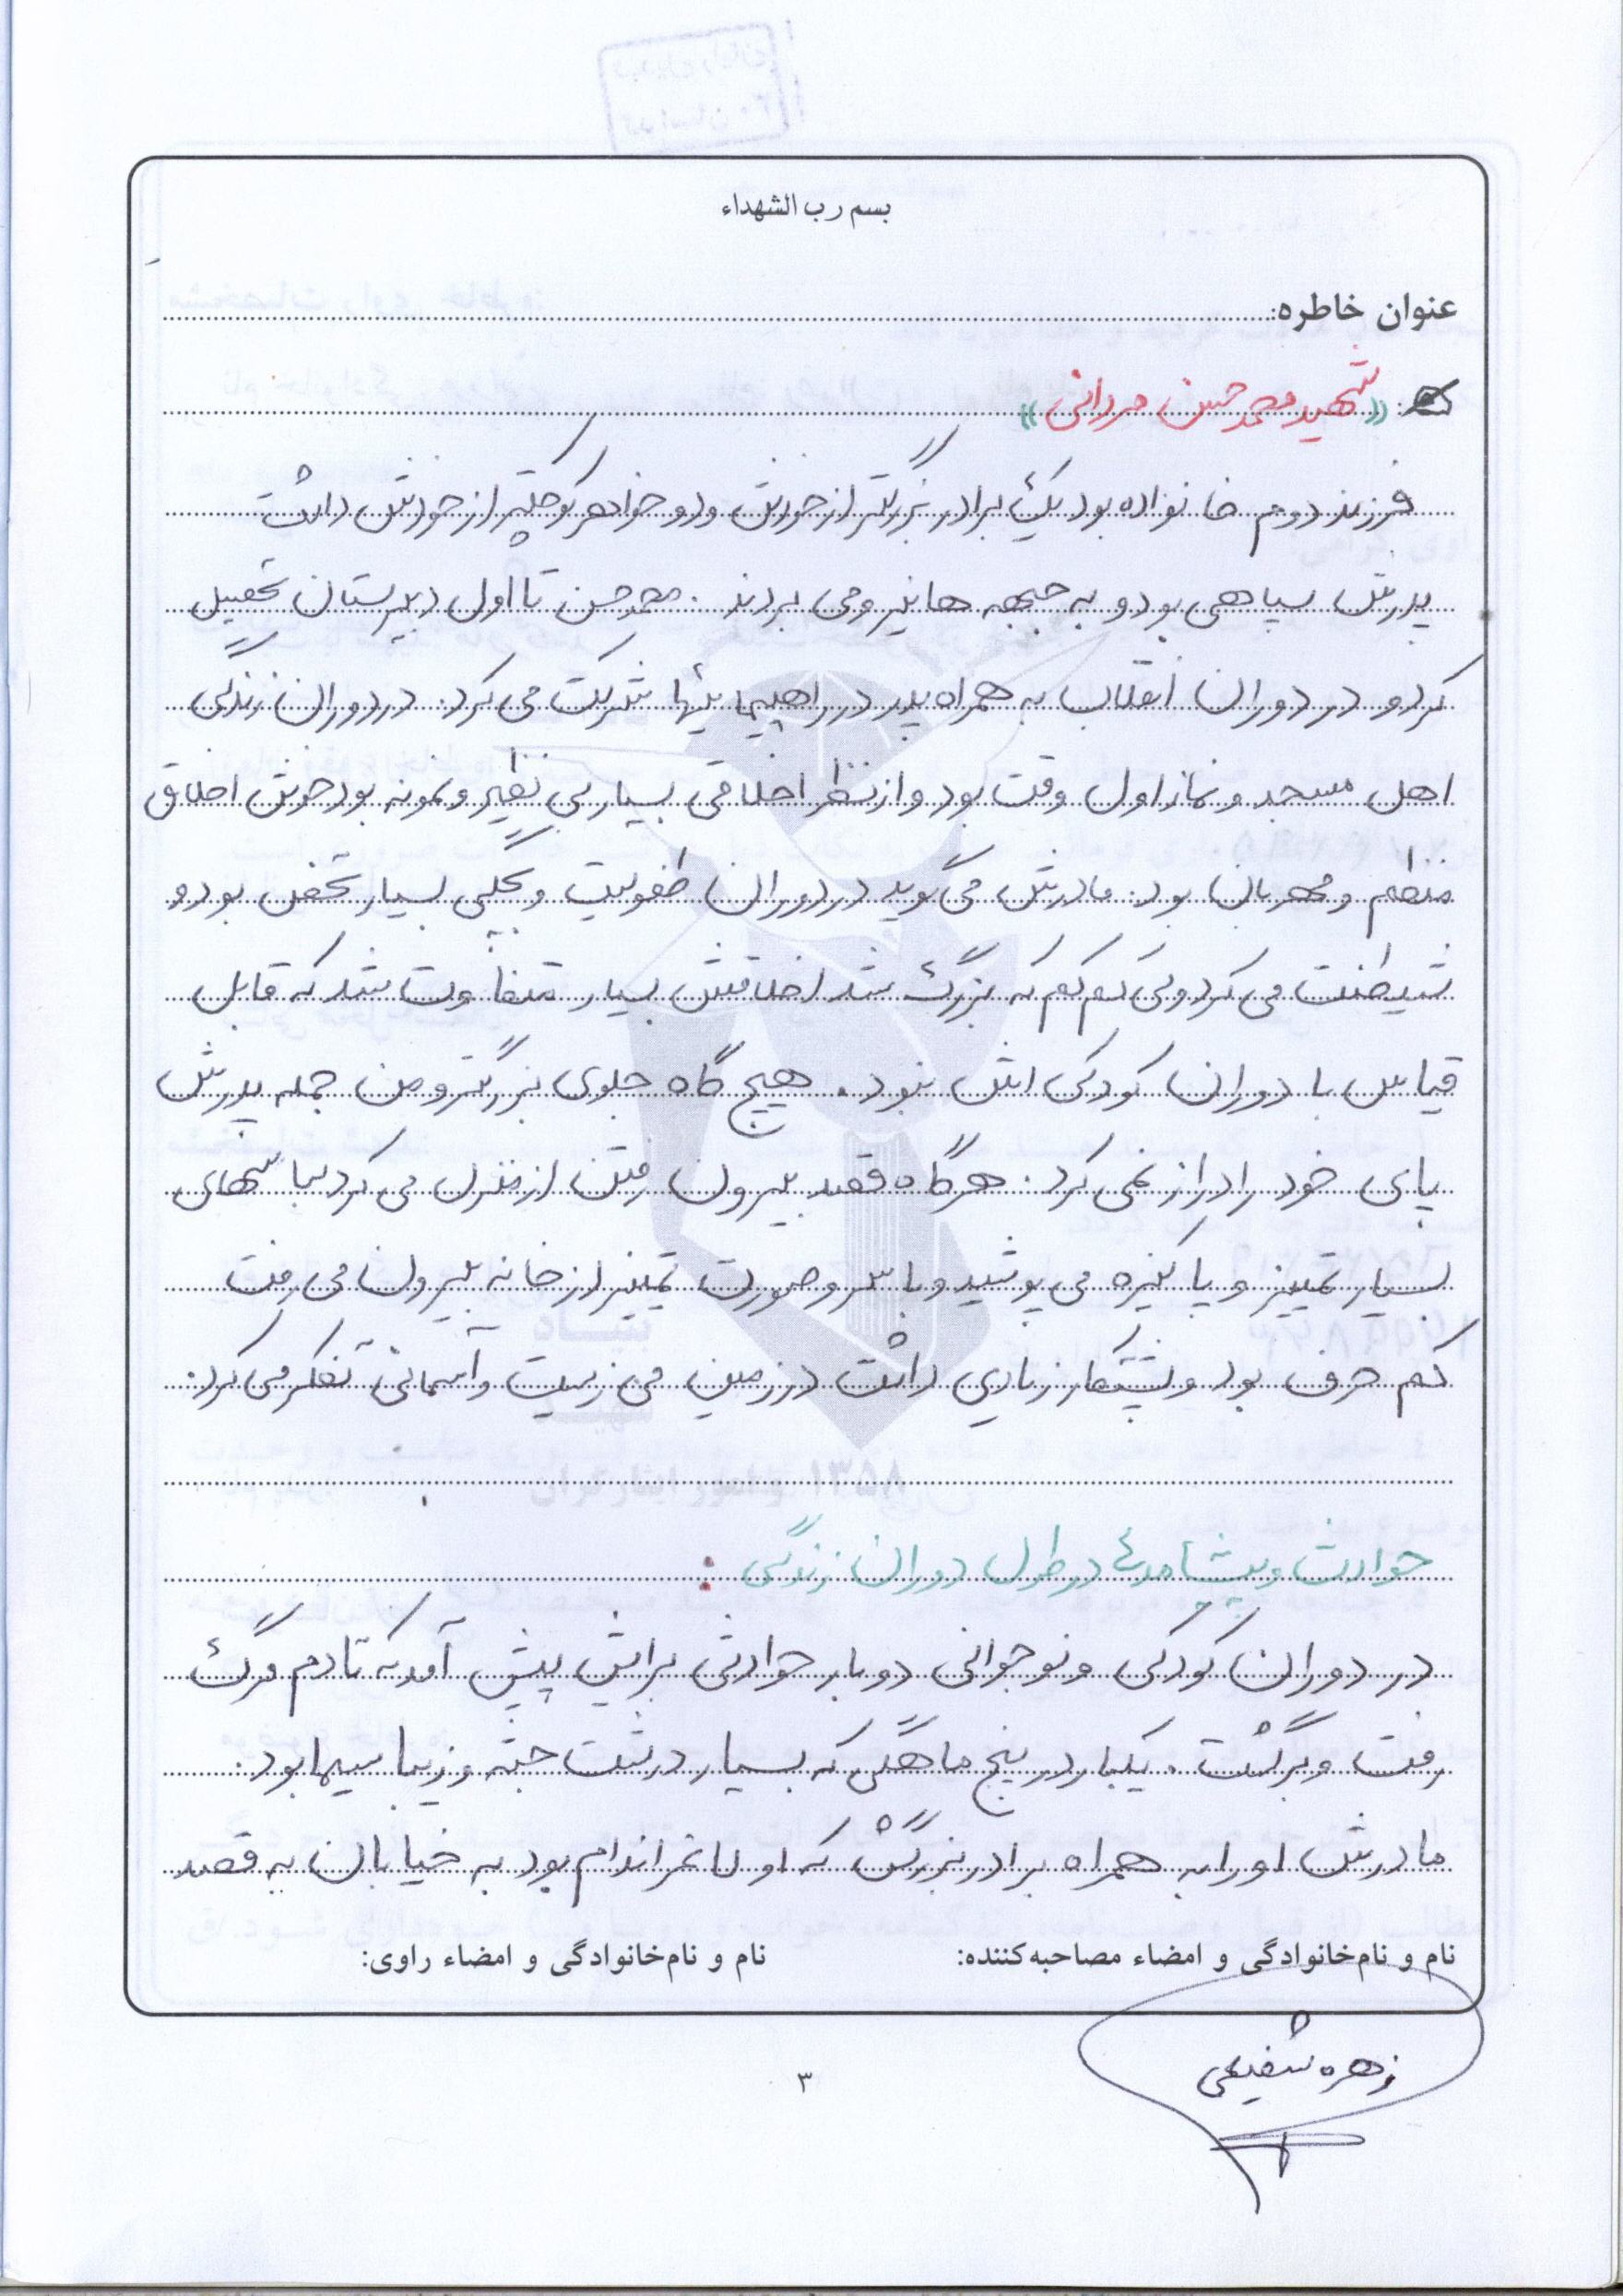 بسم رب الشهداء
عنوان خاطره:
«شهید محمد حسن مردانی»
فرزند دوم خانواده بود یک برادر بزرگتر از خودش و دو خواهر کوچکتر از خودش داشت
پدرش سپاهی بود و به جبهه ها نیرو می بردند . محمد حسن تا اول دبیرستان تحصیل
کرد و در دوران انقلاب به همراه پدر در راهپیمائیها شرکت می کرد. در دوران زندگی
اهل مسجد و نماز اول وقت بود و از نظر اخلاقی بسیار بی نظیر و نمونه بود خوش اخلاق
منظم و مهربان بود. مادرش می گوید در دوران طفولیت و بچگی بسیار تخس بود و
شیطنت می کرد ولی کم کم که بزرگ شد اخلاقش بسیار متفاوت شد که قابل
قیاس با دوران کودکی اش نبود. هیچ گاه جلوی بزرگتر و من جمله پدرش
پای خود را دراز نمی کرد. هر گاه قصد بیرون رفتن از منزل می کرد لباسهای
بسیار تمییز و پاکیزه می پوشید و با سر و صورت تمییز از خانه بیرون می رفت
کم حرف بود و پشتکار زیادی داشت در زمین می زیست و آسمانی تفکر می کرد.
حوادث و پیشامدهای در طول دوران زندگی :
در دوران کودکی و نوجوانی دو بار حوادثی برایش پیش آمد که تا دم مرگ
رفت و برگشت . یکبار در پنج ماهگی که بسیار درشت جثه و زیبا سیما بود.
مادرش او را به همراه برادر بزرگش که او لاغر اندام بود به خیابان به قصد
نام و نام‌خانوادگی و امضاء مصاحبه‌کننده: نام و نام‌خانوادگی و امضاء راوی:
زهره شفیعی
۳